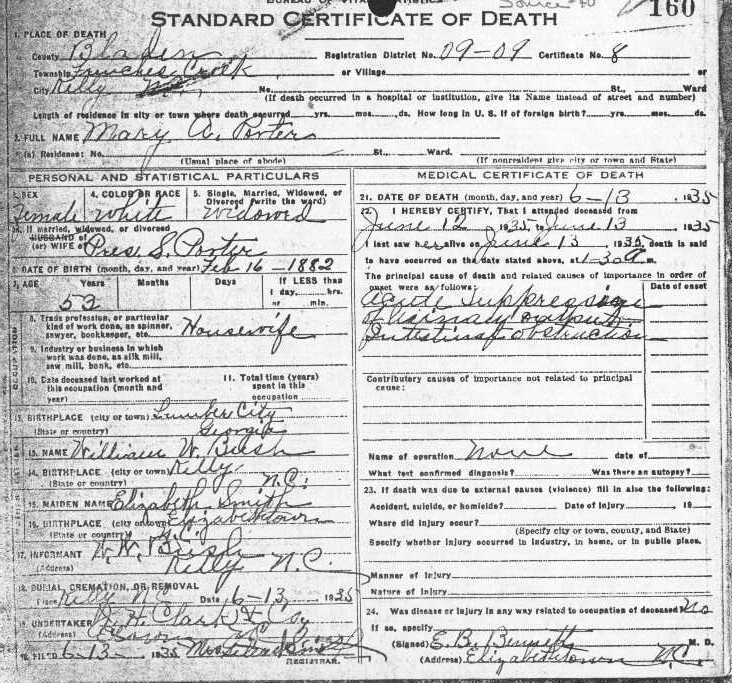 BUREAU OF VITAL STATISTICS
160
STANDARD CERTIFICATE OF DEATH
1. PLACE OF DEATH
County Bladen Registration District No. 09-09 Certificate No. 8
Township Frenches Creek or Village or
City Kelly No. St., Ward
(If death occurred in a hospital or institution, give its Name instead of street and number)
Length of residence in city or town where death occurred yrs. mos. ds. How long in U. S. if of foreign birth? yrs. mos. ds.
2. FULL NAME Mary A. Porter
(a) Residence: No. St., Ward.
(Usual place of abode) (If nonresident give city or town and State)
PERSONAL AND STATISTICAL PARTICULARS
3. SEX 4. COLOR OR RACE 5. Single, Married, Widowed, or Divorced (write the word)
Female White Widowed
5a. If married, widowed, or divorced
HUSBAND of
(or) WIFE of Pres. S. Porter
6. DATE OF BIRTH (month, day, and year) Feb 16-1882
7. AGE Years Months Days If LESS than
1 day, hrs.
or min.
53
8. Trade, profession, or particular
kind of work done, as spinner,
sawyer, bookkeeper, etc. Housewife
9. Industry or business in which
work was done, as silk mill,
saw mill, bank, etc.
10. Date deceased last worked at
this occupation (month and
year)
11. Total time (years)
spent in this
occupation
12. BIRTHPLACE (city or town) Lumber City
(State or country) Georgia
13. NAME William W. Bush
14. BIRTHPLACE (city or town) Kelly
(State or country) N.C.
15. MAIDEN NAME Elizabeth Smith
16. BIRTHPLACE (city or town) Elizabethtown
(State or country) N.C.
17. INFORMANT W. W. Bush
(Address) Kelly N.C.
18. BURIAL, CREMATION, OR REMOVAL
Place Kelly N.C. Date 6-13, 1935
19. UNDERTAKER H. Clark
(Address)
20. FILED 6-13-, 1935
REGISTRAR.
MEDICAL CERTIFICATE OF DEATH
21. DATE OF DEATH (month, day, and year) 6-13, 1935
22. I HEREBY CERTIFY, That I attended deceased from
June 12, 1935, to June 13, 1935
I last saw her alive on June 13, 1935, death is said
to have occurred on the date stated above, at 1-30 a m.
The principal cause of death and related causes of importance in order of
onset were as follows: Date of onset
Acute Suppression
of urinary output
Intestinal obstruction
Contributory causes of importance not related to principal
cause:
Name of operation none date of
What test confirmed diagnosis? Was there an autopsy?
23. If death was due to external causes (violence) fill in also the following:
Accident, suicide, or homicide? Date of injury 19
Where did injury occur?
(Specify city or town, county, and State)
Specify whether injury occurred in industry, in home, or in public place.
Manner of injury
Nature of injury
24. Was disease or injury in any way related to occupation of deceased? No
If so, specify
(Signed) E. B. Bennett M. D.
(Address) Elizabethtown N.C.